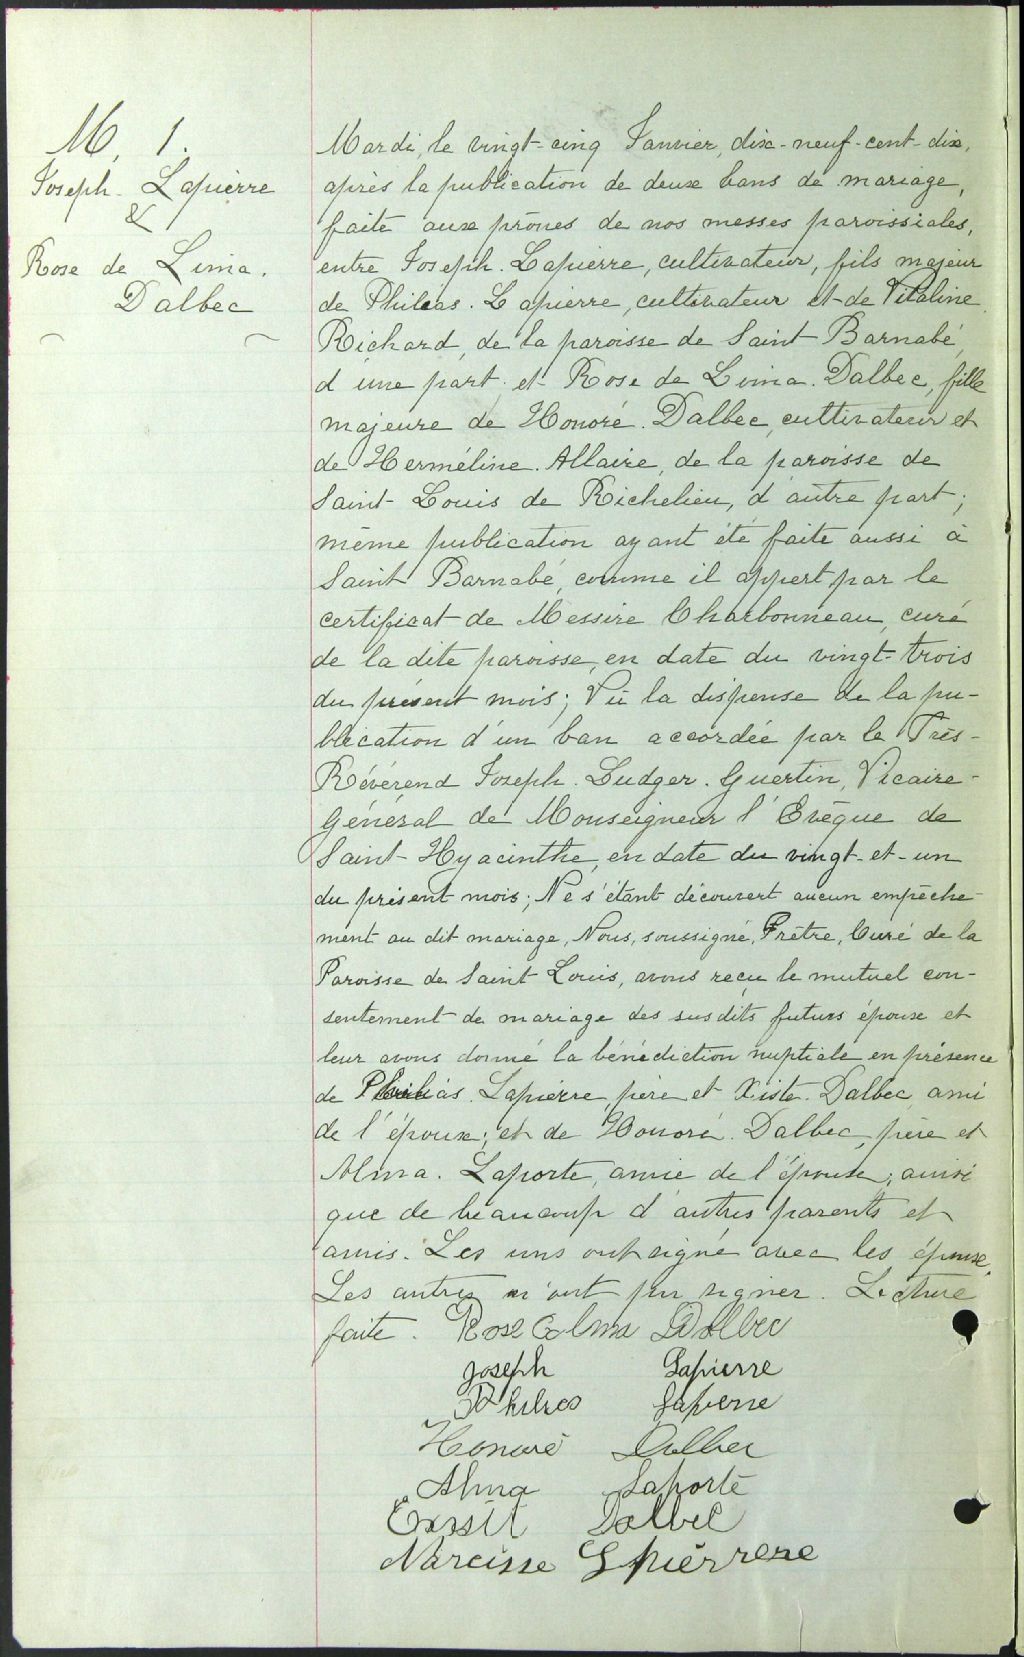 M. 1.
Joseph. Lapierre
&
Rose de Lima.
Dalbec
Mardi, le vingt-cinq Janvier, dix-neuf-cent-dix,
après la publication de deux bans de mariage,
faite aux prônes de nos messes paroissiales,
entre Joseph. Lapierre, cultivateur, fils majeur
de Philéas. Lapierre, cultivateur et de Vitaline
Richard, de la paroisse de Saint Barnabé,
d'une part et Rose de Lima. Dalbec, fille
majeure de Honoré. Dalbec, cultivateur et
de Herméline. Allaire, de la paroisse de
Saint Louis de Richelieu, d'autre part;
même publication ayant été faite aussi à
Saint Barnabé, comme il appert par le
certificat de Messire Charbonneau, curé
de la dite paroisse, en date du vingt-trois
du présent mois; Vu la dispense de la pu-
blication d'un ban accordée par le Très-
Révérend Joseph. Ludger. Guertin, Vicaire-
Général de Monseigneur l'Evêque de
Saint-Hyacinthe, en date du vingt-et-un
du présent mois; Ne s'étant découvert aucun empêche-
ment au dit mariage, Nous, soussigné, Prêtre, Curé de la
Paroisse de Saint Louis, avons reçu le mutuel con-
sentement de mariage des susdits futurs époux et
leur avons donné la bénédiction nuptiale en présence
de Philéas. Lapierre, père et Xiste. Dalbec, ami
de l'époux; et de Honoré. Dalbec, père et
Alma. Laporte, amie de l'épouse; ainsi
que de beaucoup d'autres parents et
amis. Les uns ont signé avec les époux.
Les autres n'ont pu signer. Lecture
faite. Rose Alma Dalbec
Joseph Lapierre
Philias Lapierre
Honoré Dalbec
Alma Laporte
Dalbec
Narcisse Lpierrere